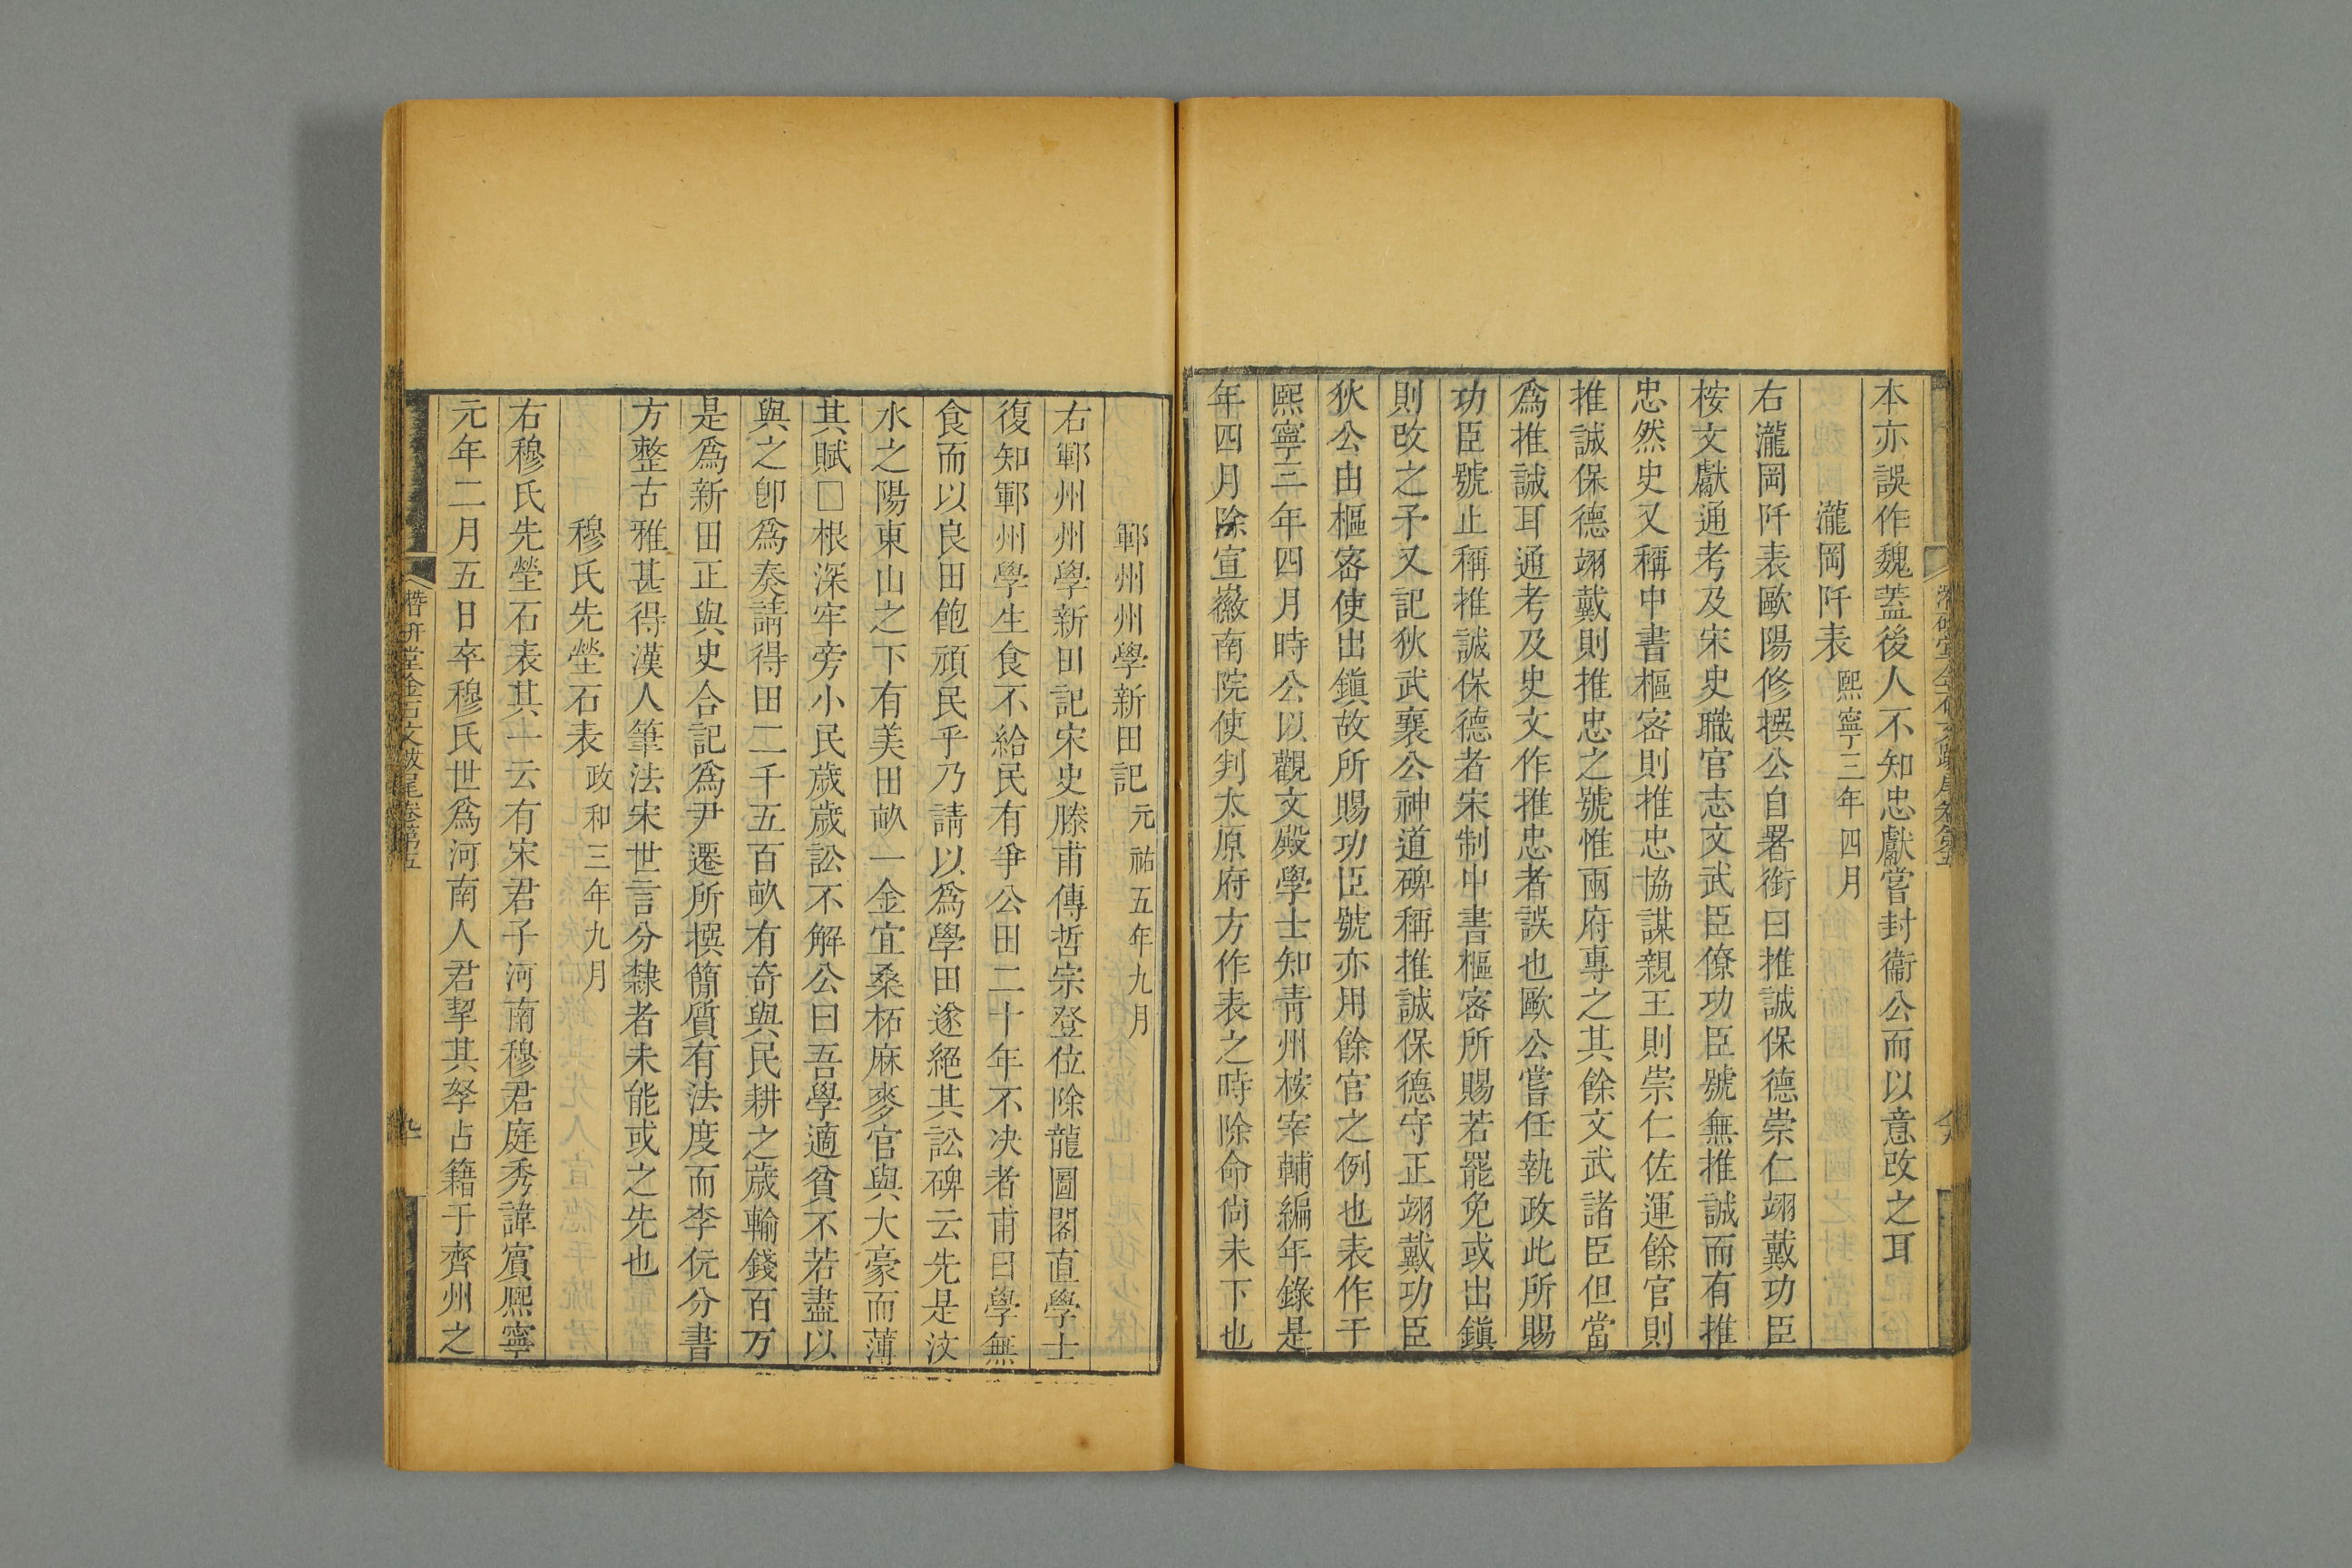 本亦誤作魏蓋後人不知忠獻嘗封衞公而以意改之耳
瀧岡阡表熙寧三年四月
右瀧岡阡表歐陽修撰公自署銜曰推誠保德崇仁翊戴功臣
桉文獻通考及宋史職官志文武臣僚功臣號無推誠而有推
忠然史又稱中書樞密則推忠協謀親王則崇仁佐運餘官則
推誠保德翊戴則推忠之號惟兩府專之其餘文武諸臣但當
爲推誠耳通考及史文作推忠者誤也歐公嘗任執政此所賜
功臣號止稱推誠保德者宋制中書樞密所賜若罷免或出鎭
則改之予又記狄武襄公神道碑稱推誠保德守正翊戴功臣
狄公由樞密使出鎭故所賜功臣號亦用餘官之例也表作于
熙寧三年四月時公以觀文殿學士知靑州桉宰輔編年錄是
年四月除宣徽南院使判太原府方作表之時除命尙未下也
鄆州州學新田記元祐五年九月
右鄆州州學新田記宋史滕甫傳哲宗登位除龍圖閣直學士
復知鄆州學生食不給民有爭公田二十年不决者甫曰學無
食而以良田飽頑民乎乃請以爲學田遂絕其訟碑云先是汶
水之陽東山之下有美田畝一金宜桑柘麻麥官與大豪而薄
其賦□根深牢旁小民歲歲訟不解公曰吾學適貧不若盡以
與之卽爲奏請得田二千五百畝有奇與民耕之歲輸錢百万
是爲新田正與史合記爲尹遷所撰簡質有法度而李伉分書
方整古雅甚得漢人筆法宋世言分隸者未能或之先也
穆氏先塋石表政和三年九月
右穆氏先塋石表其一云有宋君子河南穆君庭秀諱賔熈寧
元年二月五日卒穆氏世爲河南人君挈其孥占籍于齊州之